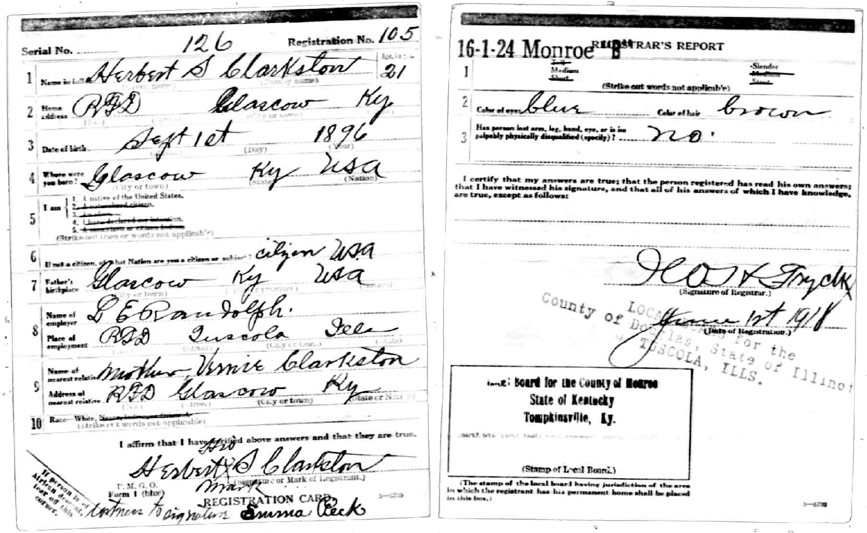 Serial No. 126 Registration No. 105
1 Name in full Herbert S Clarkston Age, in yrs. 21
2 Home address RFD Glascow Ky
3 Date of birth Sept 1st 1896
(Day) (Year)
4 Where were you born? Glascow Ky USA
(City or town) (State) (Nation)
5 I am
1. A native of the United States.
2. A naturalized citizen.
3. An alien.
4. I have declared my intention.
5. A noncitizen or citizen Indian.
(Strike out items or words not applicable)
6 If not a citizen, of what Nation are you a citizen or subject? citizen USA
7 Father's birthplace Glascow Ky USA
8 Name of employer L E Randolph.
Place of employment RFD Tuscola Ills
9 Name of nearest relative Mother Vernie Clarkston
Address of nearest relative RFD Glascow Ky
(City or town) (State or Nation)
10 Race—White,
(Strike out words not applicable)
I affirm that I have verified above answers and that they are true.
His
Herbert S Clarkston
mark
(Signature or Mark of Registrant.)
P. M. G. O.
Form 1 (blue)
REGISTRATION CARD
If person is of African descent, tear off this corner.
witness to signature Emma Peck
16-1-24 Monroe "B"
REGISTRAR'S REPORT
1 Tall Medium Short Slender Medium Stout
(Strike out words not applicable)
2 Color of eyes blue Color of hair brown
3 Has person lost arm, leg, hand, eye, or is he palpably physically disqualified (specify)? no.
I certify that my answers are true; that the person registered has read his own answers;
that I have witnessed his signature, and that all of his answers of which I have knowledge,
are true, except as follows:
(Signature of Registrar.)
June 1st 1918
(Date of Registration.)
LOCAL for the
County of Douglas, State of Illinois
TUSCOLA, ILLS.
Local Board for the County of Monroe
State of Kentucky
Tompkinsville, Ky.
(Stamp of Local Board.)
(The stamp of the local board having jurisdiction of the area
in which the registrant has his permanent home shall be placed
in this box.)